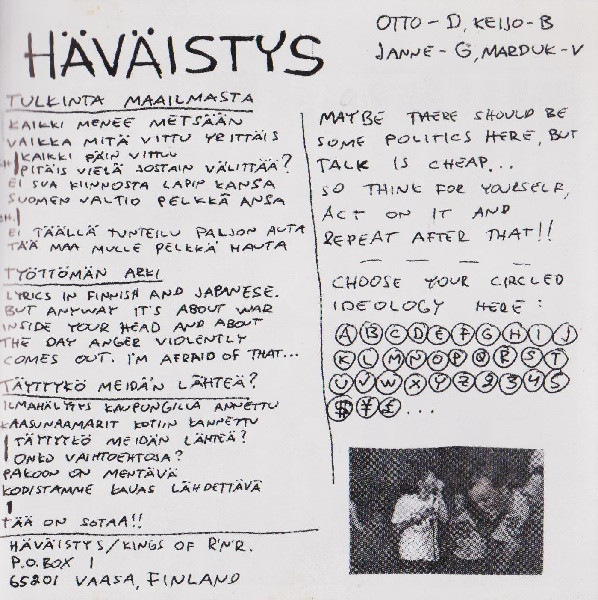 HÄVÄISTYS
OTTO - D, KEIJO - B
JANNE - G, MARDUK - V
TULKINTA MAAILMASTA
KAIKKI MENEE METSÄÄN
VAIKKA MITÄ VITTU YRITTÄIS
KAIKKI PÄIN VITTUU
PITÄIS VIELÄ JOSTAIN VÄLITTÄÄ?
EI SUA KIINNOSTA LAPIN KANSA
SUOMEN VALTIO PELKKÄ ANSA
EI TÄÄLLÄ TUNTEILU PALJON AUTA
TÄÄ MAA MULLE PELKKÄ HAUTA
TYÖTTÖMÄN ARKI
LYRICS IN FINNISH AND JAPANESE.
BUT ANYWAY IT'S ABOUT WAR
INSIDE YOUR HEAD AND ABOUT
THE DAY ANGER VIOLENTLY
COMES OUT. I'M AFRAID OF THAT...
TÄYTYYKÖ MEIDÄN LÄHTEÄ?
ILMAHÄLYTYS KAUPUNGILLA ANNETTU
KAASUNAAMARIT KOTIIN KANNETTU
TÄYTYYKÖ MEIDÄN LÄHTEÄ?
ONKO VAIHTOEHTOJA?
PAKOON ON MENTÄVÄ
KODISTAMME KAUAS LÄHDETTÄVÄ
TÄÄ ON SOTAA!!
HÄVÄISTYS/KINGS OF R'N'R.
P.O. BOX 1
65201 VAASA, FINLAND
MAYBE THERE SHOULD BE
SOME POLITICS HERE, BUT
TALK IS CHEAP...
SO THINK FOR YOURSELF,
ACT ON IT AND
REPEAT AFTER THAT!!
CHOOSE YOUR CIRCLED
IDEOLOGY HERE:
A B C D E F G H I J
K L M N O P Q R S T
U V W X Y Z 2 3 4 5
$ ¥ £ ...